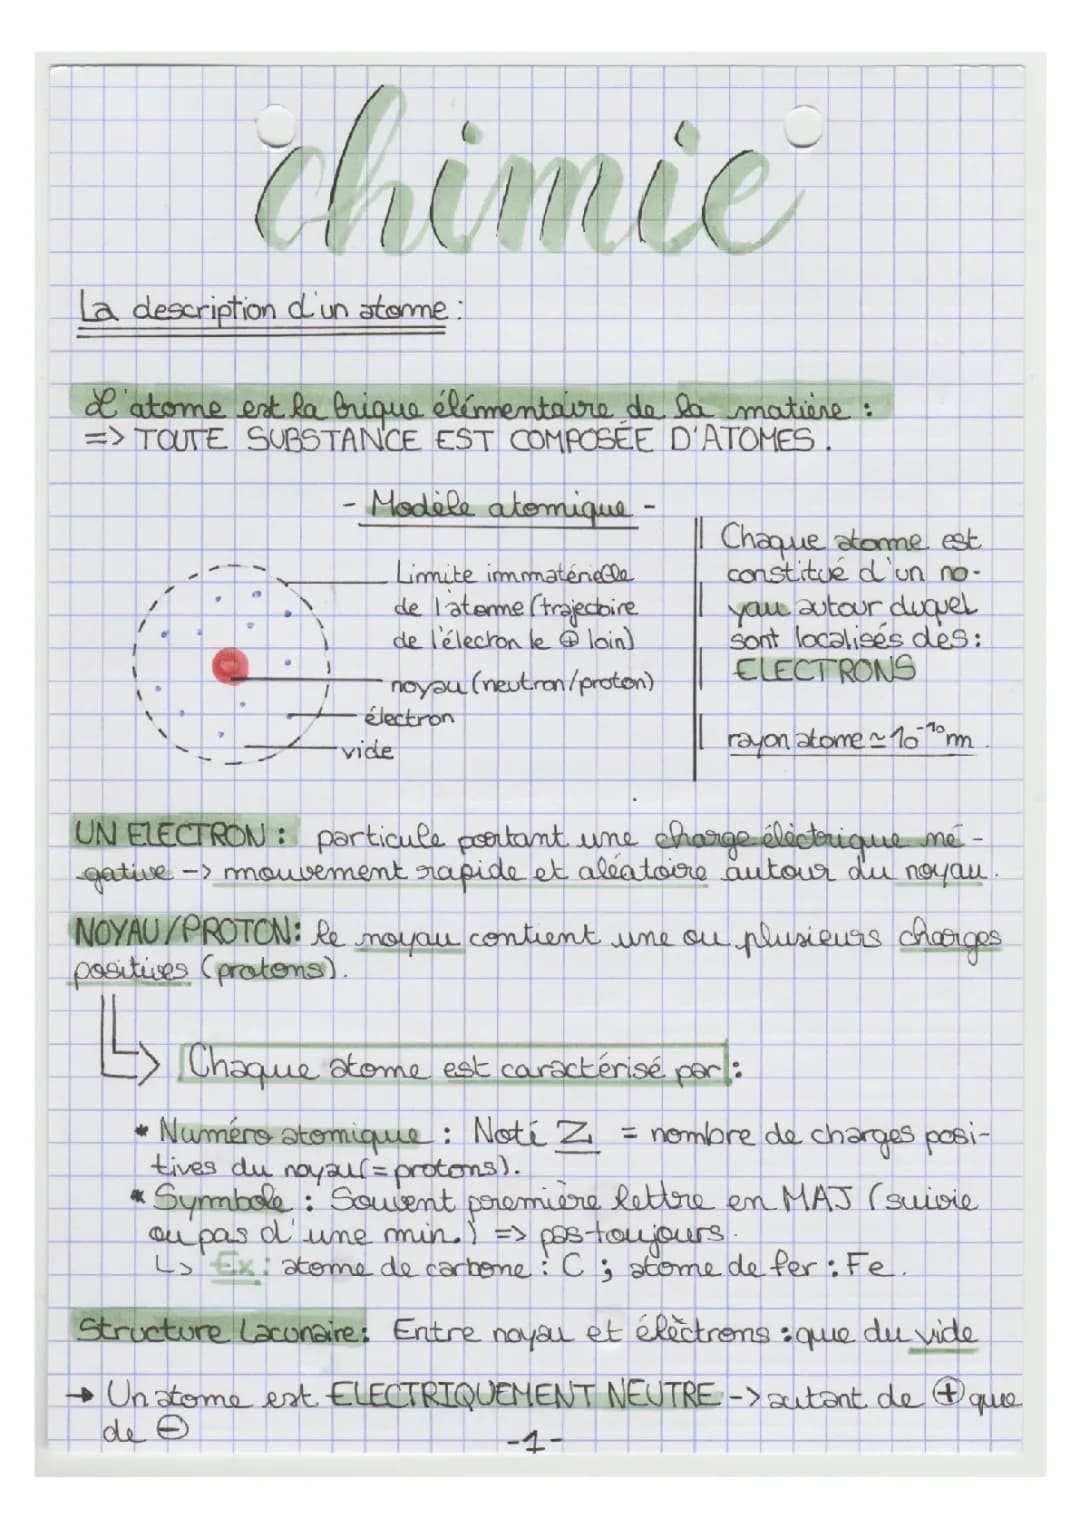 chimie
La description d'un atome :
L'atome est la brique élémentaire de la matière :
=> TOUTE SUBSTANCE EST COMPOSÉE D'ATOMES.
- Modèle atomique -
Limite immatérielle
de l'atome (trajectoire
de l'élecron le ⊕ loin)
noyau (neutron/proton)
électron
vide
Chaque atome est
constitué d'un no-
yau autour duquel
sont localisés des :
ELECTRONS
rayon atome ≃ 10⁻¹⁰ m.
UN ELECTRON : particule portant une charge éléctrique né-
gative -> mouvement rapide et aléatoire autour du noyau.
NOYAU/PROTON: le noyau contient une ou plusieurs charges
positives (protons).
Chaque atome est caractérisé par :
* Numéro atomique : Noté Z = nombre de charges posi-
tives du noyau (= protons).
* Symbole : Souvent première lettre en MAJ (suivie
ou pas d'une min.) => pas toujours.
↳ Ex : atome de carbone : C ; atome de fer : Fe.
Structure Lacunaire: Entre noyau et éléctrons : que du vide
→ Un atome est ELECTRIQUEMENT NEUTRE -> autant de ⊕ que
de ⊖
-1-